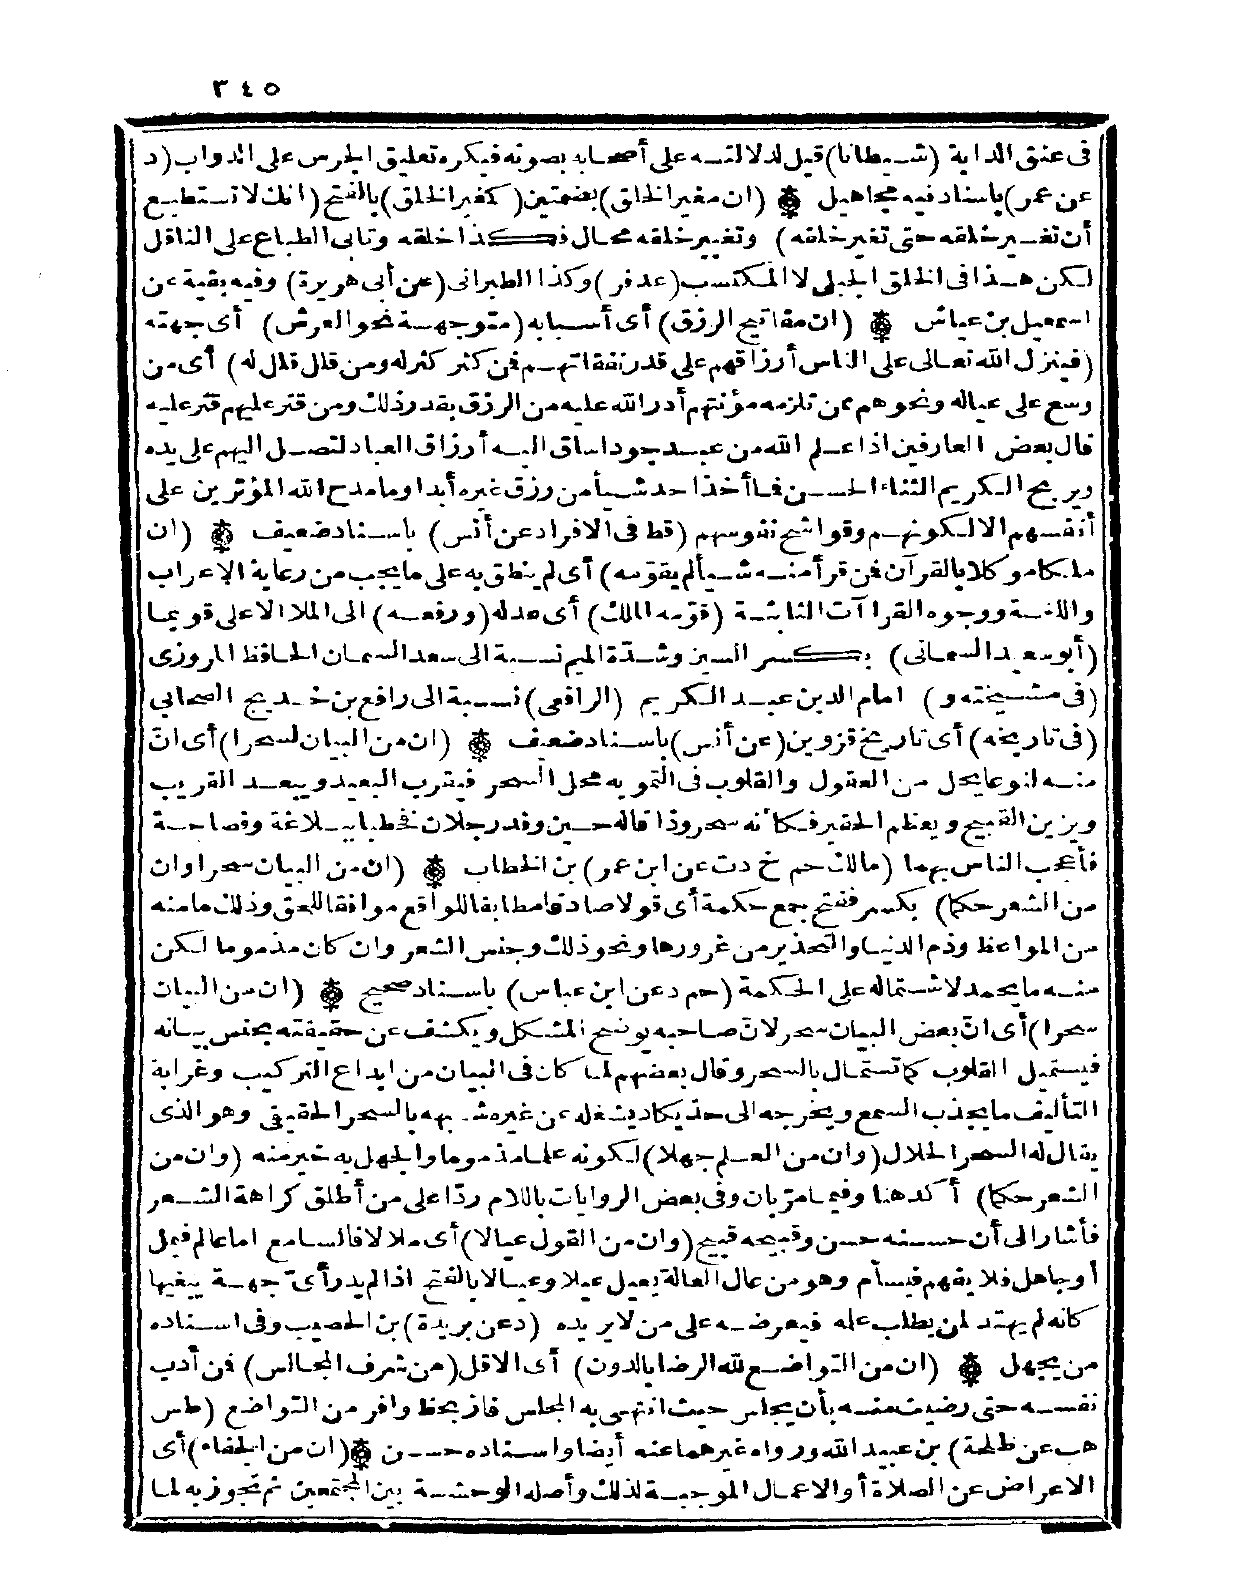 ٣٤٥
فى عنق الدابة (شيطانا) قيل لدلالته على أصحابه بصوته فيكره تعليق الجرس على الدواب (د
عن عمر) باسناد فيه مجاهيل ۞ (ان مغير الخلق) بضمتين (كمغير الخلق) بالفتح (انك لا تستطيع
أن تغير خلقه حتى تغير خلقه) وتغيير خلقه محال فكذا خلقه وتأبى الطباع على الناقل
لكن هذا فى الخلق الجبلى لا المكتسب (عد فر) وكذا الطبرانى (عن أبى هريرة) وفيه بقية عن
اسمعيل بن عياش ۞ (ان مفاتيح الرزق) أى أسبابه (متوجهة نحو العرش) أى جهته
(فينزل الله تعالى على الناس أرزاقهم على قدر نفقاتهم فمن كثر كثر له ومن قلل قلل له) أى من
وسع على عياله ونحوهم ممن تلزمه مؤنتهم أدر الله عليه من الرزق بقدر ذلك ومن قتر عليهم قتر عليه
قال بعض العارفين اذا علم الله من عبد جودا ساق اليه أرزاق العباد لتصل اليهم على يده
ويربح الكريم الثناء الحسن فما أخذ أحد شيأ من رزق غيره أبدا وما مدح الله المؤثرين على
أنفسهم الا لكونهم وقوا شح نفوسهم (قط فى الافراد عن أنس) باسناد ضعيف ۞ (ان
ملكا موكلا بالقرآن فمن قرأ منه شيأ لم يقومه) أى لم ينطق به على ما يجب من رعاية الاعراب
واللغة ووجوه القراآت الثابتة (قومه الملك) أى عدله (ورفعه) الى الملا الاعلى قويما
(أبو سعيد السمانى) بكسر السين وشدة الميم نسبة الى سعد السمان الحافظ المروزى
(فى مشيخته و) امام الدين عبد الكريم (الرافعى) نسبة الى رافع بن خديج الصحابى
(فى تاريخه) أى تاريخ قزوين (عن أنس) باسناد ضعيف ۞ (ان من البيان لسحرا) أى ان
منه لنوعا يحل من العقول والقلوب فى التمويه محل السحر فيقرب البعيد ويبعد القريب
ويزين القبيح ويعظم الحقير فكأنه سحر وذا قاله حين وفد رجلان فخطبا ببلاغة وفصاحة
فأعجب الناس بهما (مالك حم خ د ت عن ابن عمر) بن الخطاب ۞ (ان من البيان سحرا وان
من الشعر حكما) بكسر ففتح جمع حكمة أى قولا صادقا مطابقا للواقع موافقا للحق وذلك ما منه
من المواعظ وذم الدنيا والتحذير من غرورها ونحو ذلك وجنس الشعر وان كان مذموما لكن
منه ما يحمد لاشتماله على الحكمة (حم د عن ابن عباس) باسناد صحيح ۞ (ان من البيان
سحرا) أى ان بعض البيان سحر لان صاحبه يوضح المشكل ويكشف عن حقيقته بحسن بيانه
فيستميل القلوب كما تستمال بالسحر وقال بعضهم لما كان فى البيان من ابداع التركيب وغرابة
التأليف ما يجذب السمع ويخرجه الى حد يكاد يشغله عن غيره شبه بالسحر الحقيقى وهو الذى
يقال له السحر الحلال (وان من العلم جهلا) لكونه علما مذموما والجهل به خير منه (وان من
الشعر حكما) أكد هنا وفيما مر بان وفى بعض الروايات باللام ردا على من أطلق كراهة الشعر
فأشار الى أن حسنه حسن وقبيحه قبيح (وان من القول عيالا) أى ملالا فالسامع اما عالم فيمل
أو جاهل فلا يفهم فيسأم وهو من عال العالة يعيل عيلا وعيالا بالفتح اذا لم يدر أى جهة يبغيها
كأنه لم يهتد لمن يطلب علمه فيعرضه على من لا يريده (د عن بريدة) بن الحصيب وفى اسناده
من يجهل ۞ (ان من التواضع لله الرضا بالدون) أى الاقل (من شرف المجالس) فمن أدب
نفسه حتى رضيت منه بأن يجلس حيث انتهى به المجلس فاز بحظ وافر من التواضع (طس
هب عن طلحة) بن عبيد الله ورواه غيرهما عنه أيضا واسناده حسن ۞ (ان من الجفاء) أى
الاعراض عن الصلاة أو الاعمال الموجبة لذلك وأصله الوحشة بين المجتمعين ثم تجوز به لما